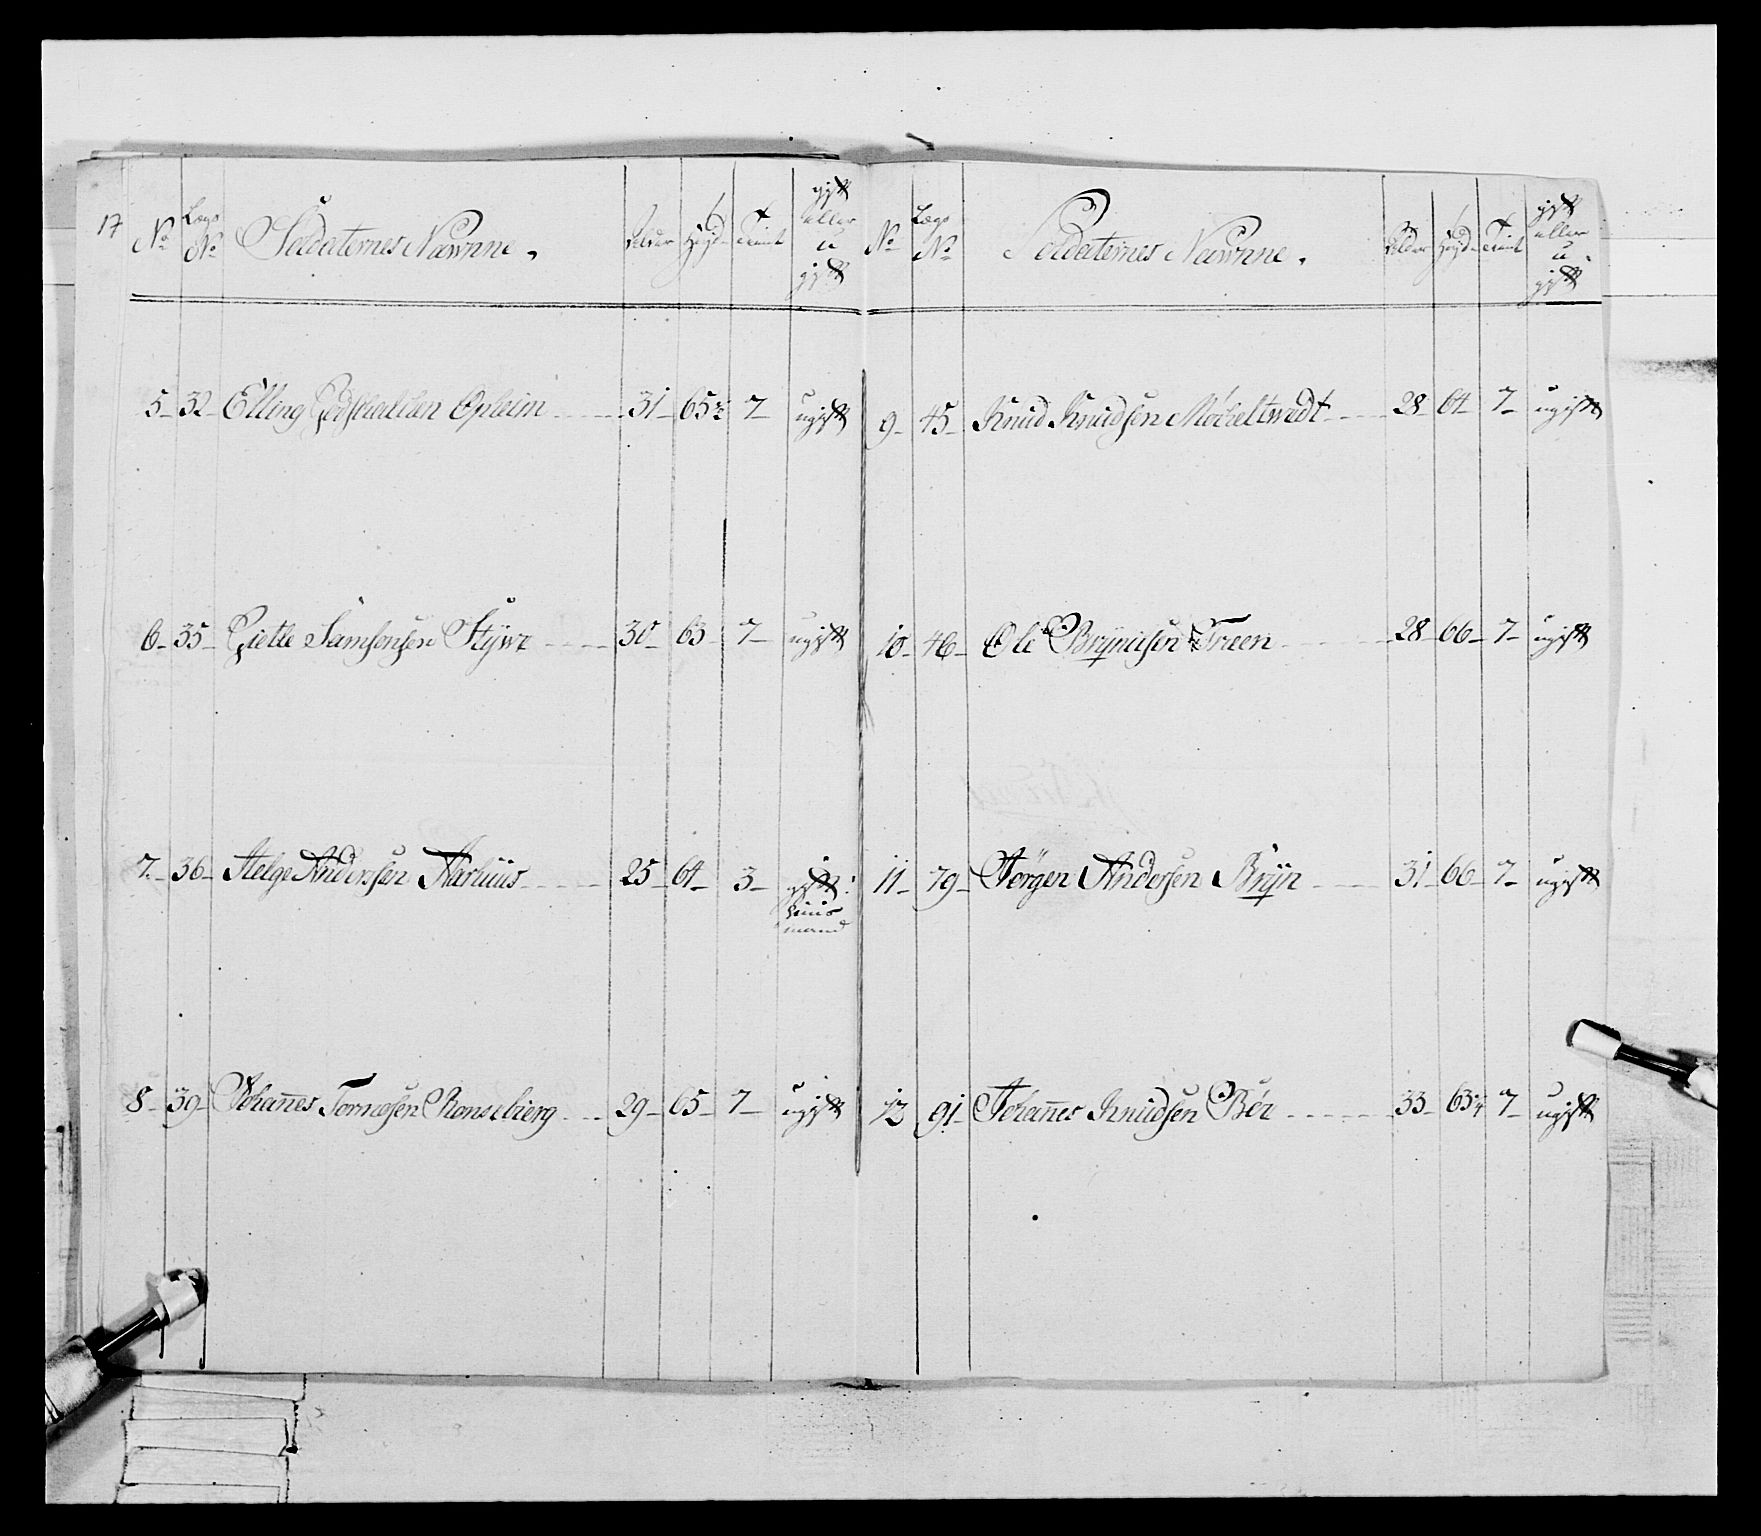 17
No Lægs No Soldaternes Nawnne. Alder Høyde Tient gift eller u gift
5 32 Elling Opheim 31 65½ 7 ugift
6 35 Gietle Samsonsen Stywe 30 63 7 ugift
7 36 Helge Andersen Aarhuus 25 64 3 gift: huus
mand
8 39 Johañes Tornesen Ronsebierg 29 65 7 ugift
No Lægs No Soldaternes Nawnne. Alder Høyde Tient gift eller u gift
9 45 Knud Knudsen Møcheltwedt 28 64 7 ugift
10 46 Ole Brÿnildsen Treen 28 66 7 ugift
11 79 Jørgen Andersen Brÿn 31 66 7 ugift
12 91 Johañes Knudsen Bøe 33 63¼ 7 ugift